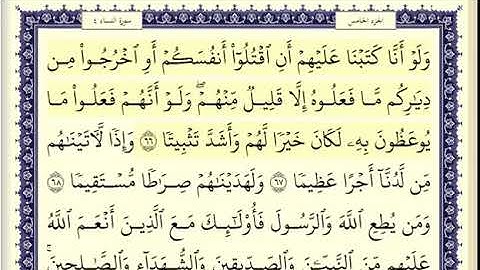 الجزء الخامس
سورة النساء ٤
وَلَوْ أَنَّا كَتَبْنَا عَلَيْهِمْ أَنِ ٱقْتُلُوٓا۟ أَنفُسَكُمْ أَوِ ٱخْرُجُوا۟ مِن
دِيَـٰرِكُم مَّا فَعَلُوهُ إِلَّا قَلِيلٌ مِّنْهُمْ ۖ وَلَوْ أَنَّهُمْ فَعَلُوا۟ مَا
يُوعَظُونَ بِهِۦ لَكَانَ خَيْرًا لَّهُمْ وَأَشَدَّ تَثْبِيتًا ٦٦ وَإِذًا لَّـَٔاتَيْنَـٰهُم
مِّن لَّدُنَّآ أَجْرًا عَظِيمًا ٦٧ وَلَهَدَيْنَـٰهُمْ صِرَٰطًا مُّسْتَقِيمًا ٦٨
وَمَن يُطِعِ ٱللَّهَ وَٱلرَّسُولَ فَأُو۟لَـٰٓئِكَ مَعَ ٱلَّذِينَ أَنْعَمَ ٱللَّهُ
عَلَيْهِم مِّنَ ٱلنَّبِيِّـۧنَ وَٱلصِّدِّيقِينَ وَٱلشُّهَدَآءِ وَٱلصَّـٰلِحِينَ ۚ